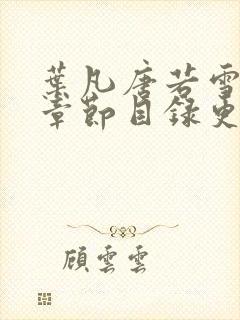 葉凡唐若雪
章節目錄更
顧雲雲